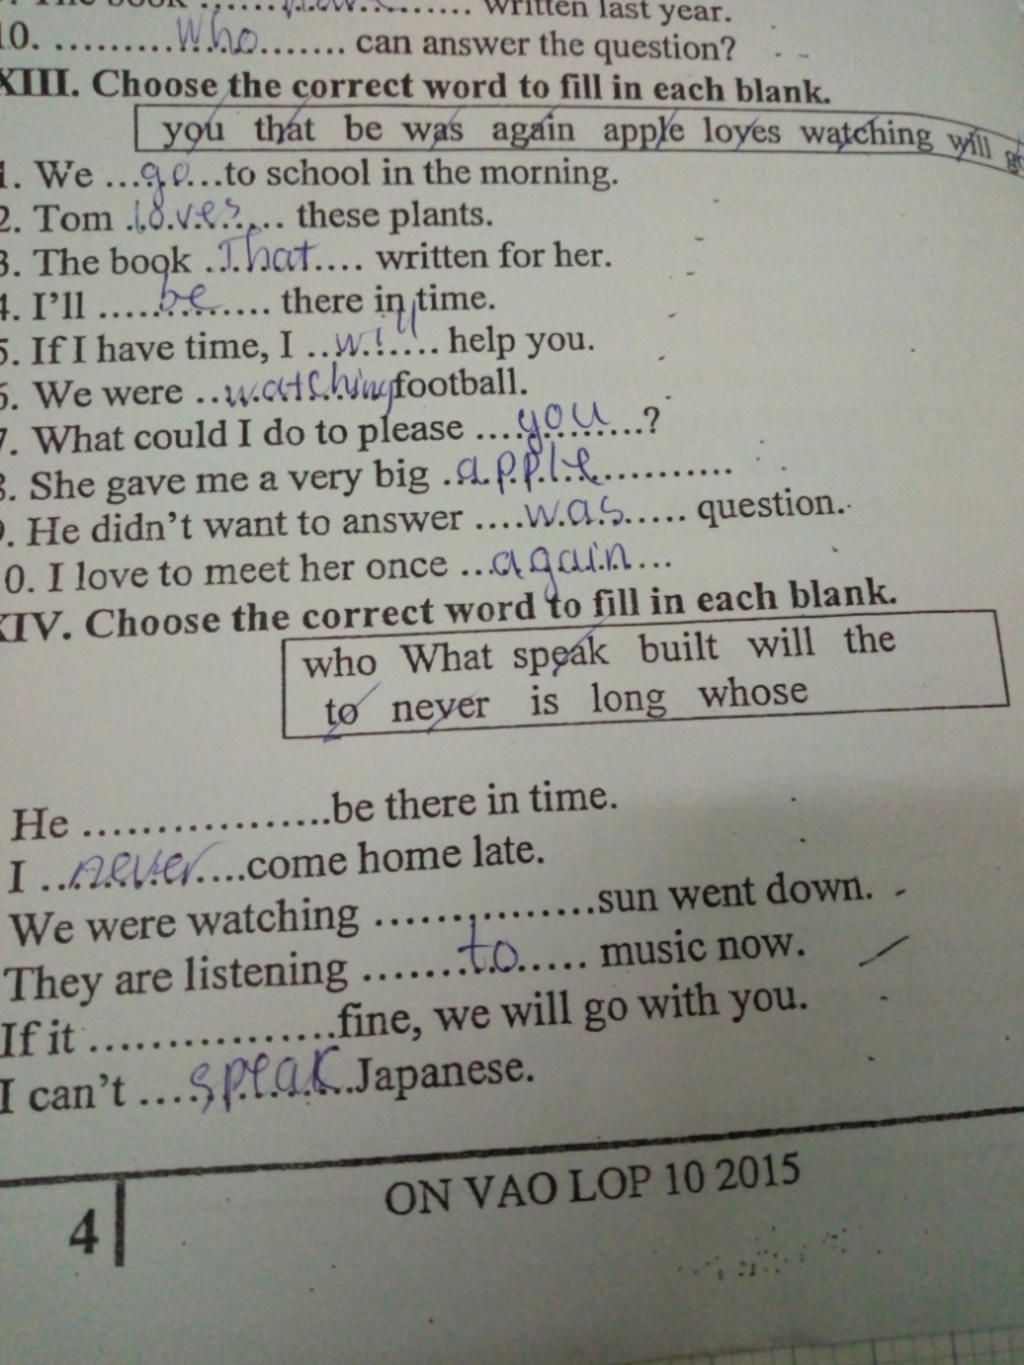 written last year.
10. .........Who....... can answer the question?
XIII. Choose the correct word to fill in each blank.
you that be was again apple loves watching will
1. We ...go...to school in the morning.
2. Tom .loves.... these plants.
3. The book ..That.... written for her.
4. I'll .....be....... there in time.
5. If I have time, I ..will.... help you.
6. We were ..watching football.
7. What could I do to please ....you........?
8. She gave me a very big .apple...........
9. He didn't want to answer ....was..... question.
10. I love to meet her once ...again...
XIV. Choose the correct word to fill in each blank.
who What speak built will the
to never is long whose
He .................be there in time.
I ..never....come home late.
We were watching ...............sun went down.
They are listening .......to..... music now.
If it .................fine, we will go with you.
I can't ....speak..Japanese.
4
ON VAO LOP 10 2015